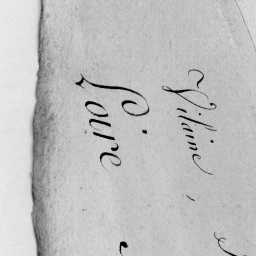 Vilaine,
Loire